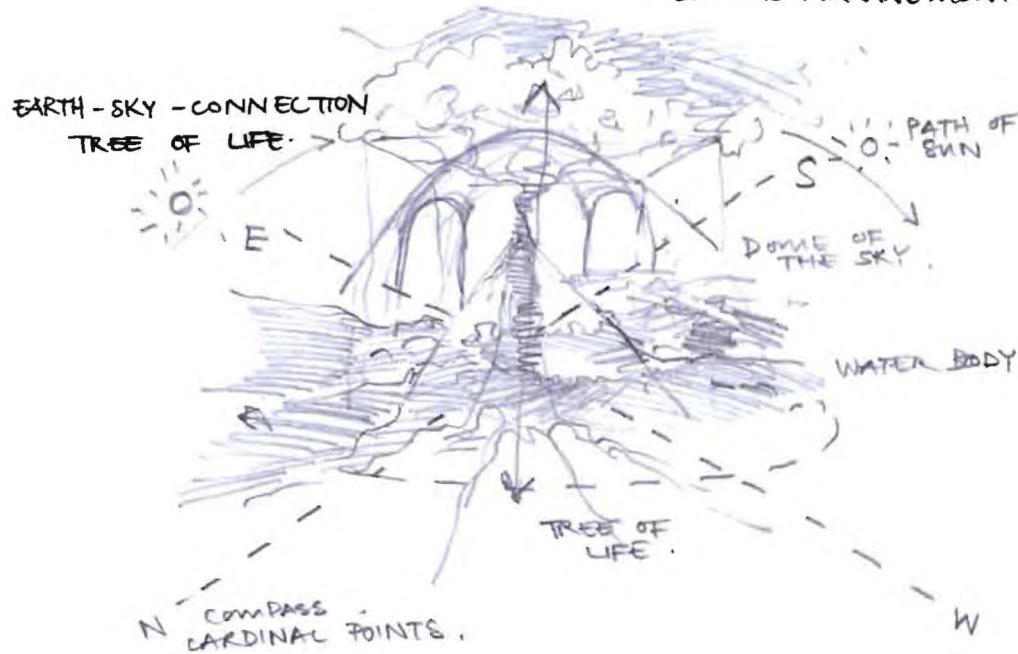 EARTH - SKY - CONNECTION
TREE OF LIFE.
PATH OF
SUN
S
E
DOME OF
THE SKY.
WATER BODY
TREE OF
LIFE.
N
COMPASS
CARDINAL POINTS.
W